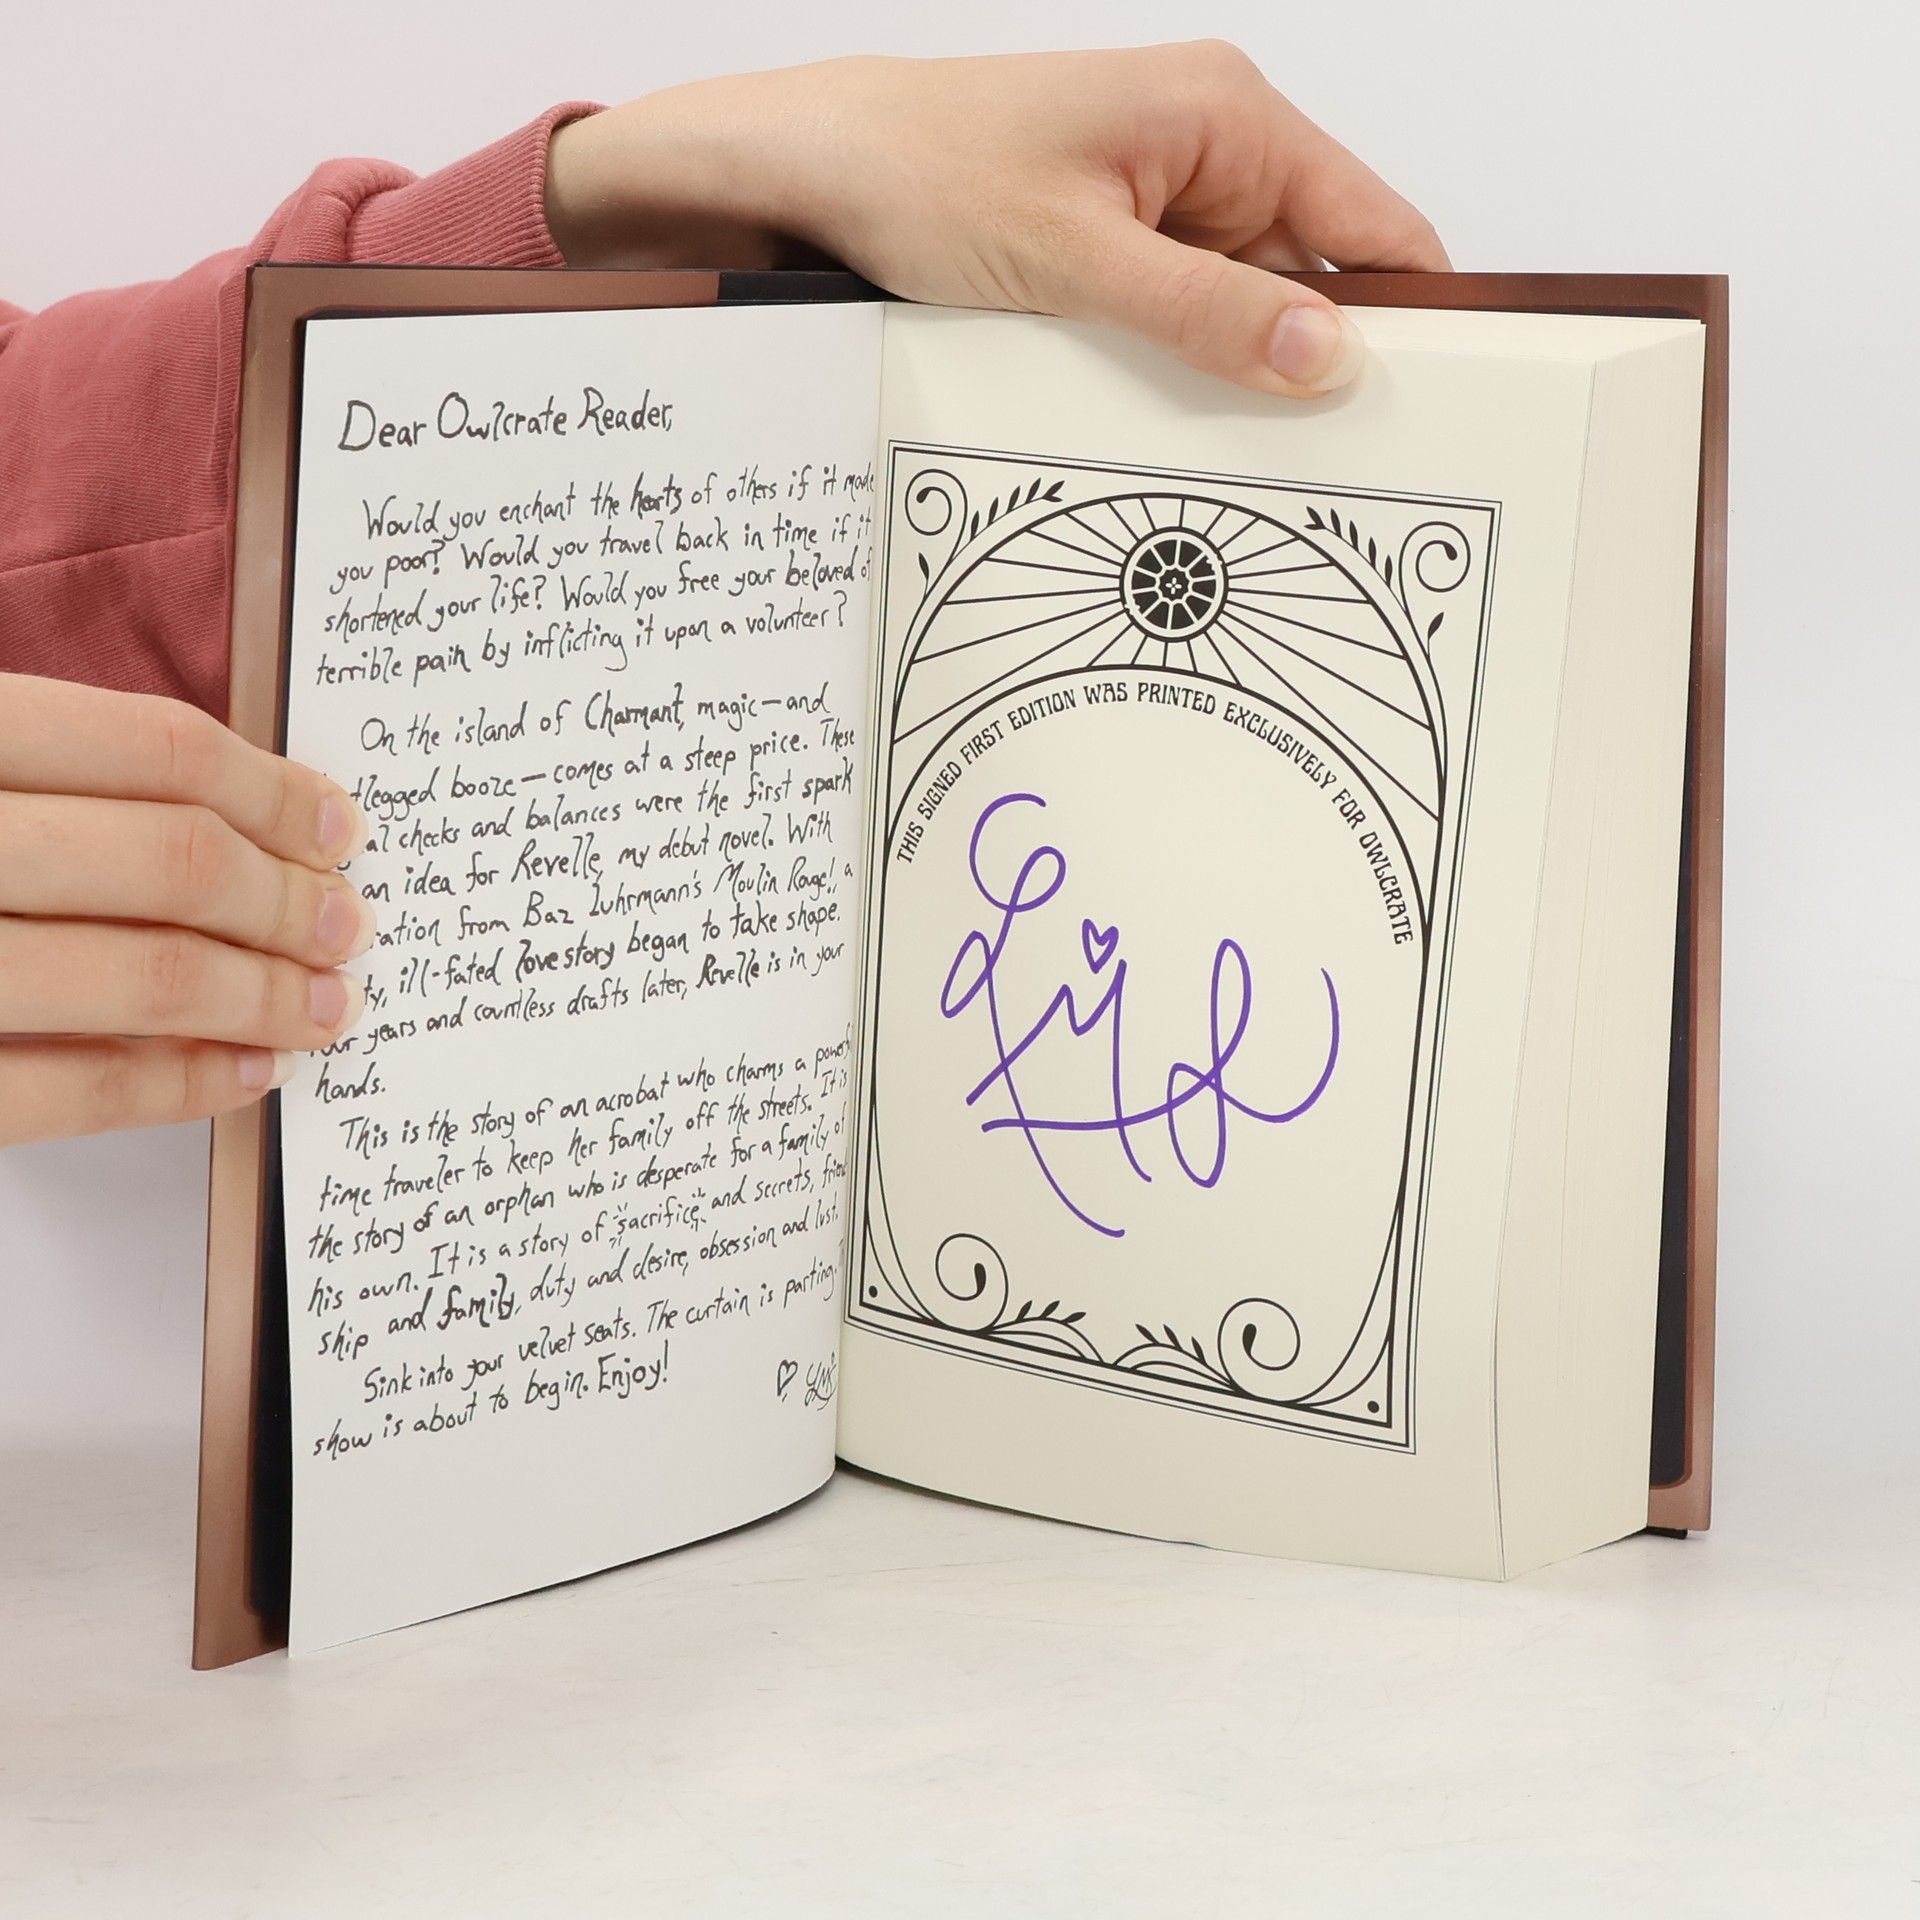 Dear Owlcrate Reader,
Would you enchant the hearts of others if it made
you poor? Would you travel back in time if it
shortened your life? Would you free your beloved of
terrible pain by inflicting it upon a volunteer?
On the island of Charmant, magic—and
tlegged booze—comes at a steep price. These
al checks and balances were the first spark
an idea for Revelle, my debut novel. With
ration from Baz Luhrmann's Moulin Rouge!, a
ty, ill-fated love story began to take shape.
years and countless drafts later, Revelle is in your
hands.
This is the story of an acrobat who charms a powerf
time traveler to keep her family off the streets. It is
the story of an orphan who is desperate for a family of
his own. It is a story of sacrifice and secrets, frien
ship and family, duty and desire, obsession and lust.
Sink into your velvet seats. The curtain is parting.
show is about to begin. Enjoy!
THIS SIGNED FIRST EDITION WAS PRINTED EXCLUSIVELY FOR OWLCRATE